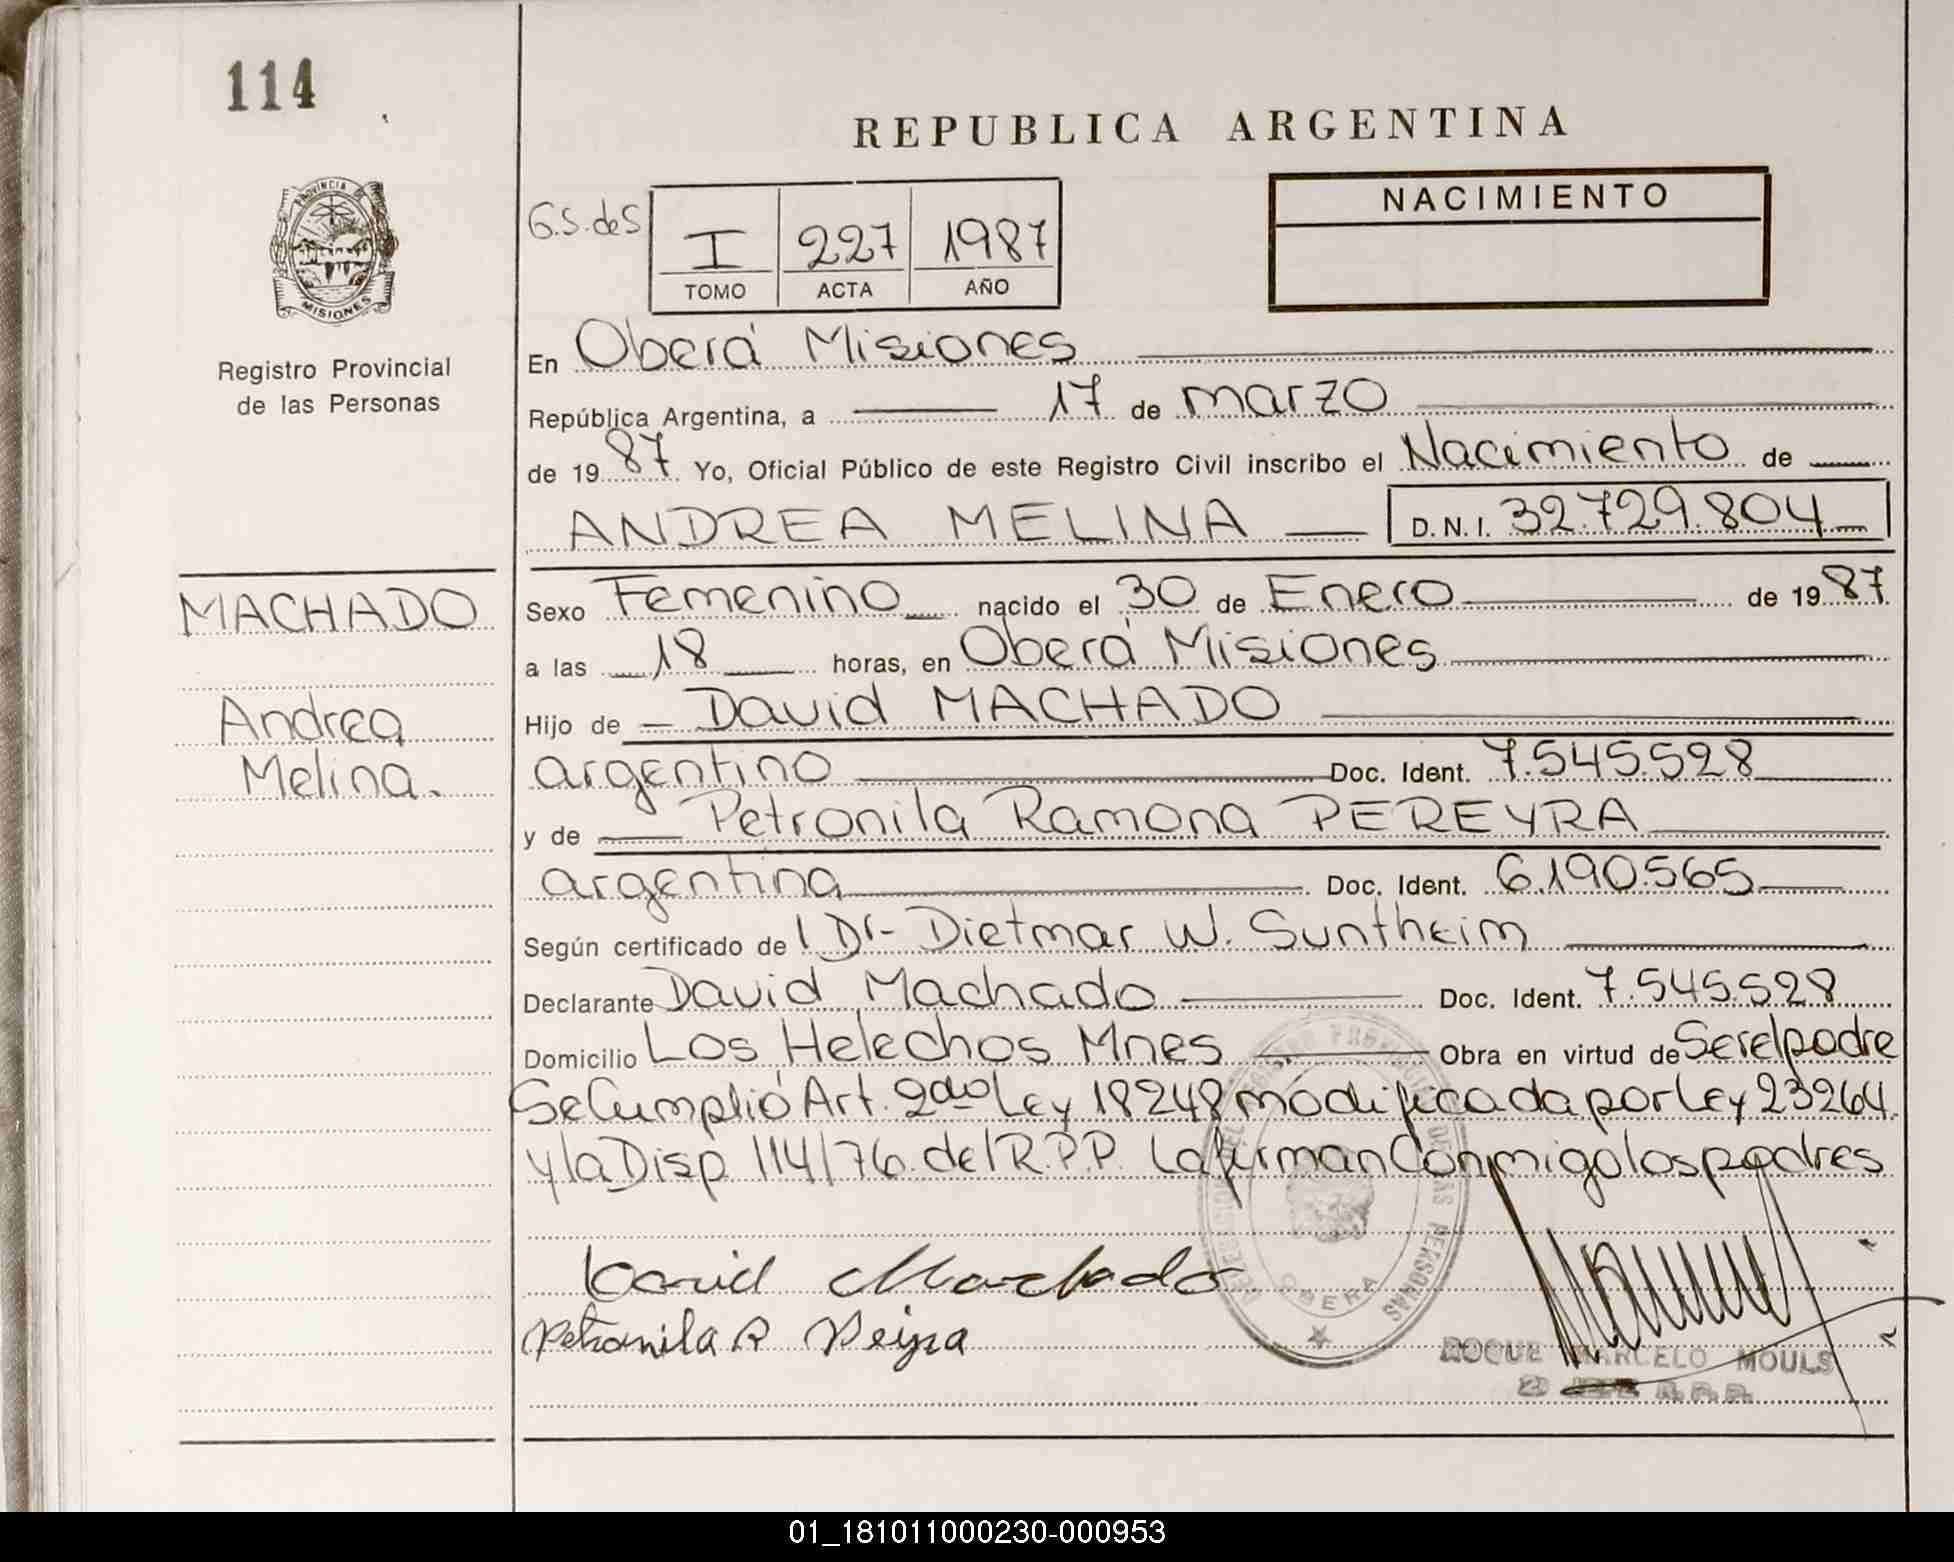 114
REPUBLICA ARGENTINA
PROVINCIA DE
MISIONES
Registro Provincial
de las Personas
G.S. de S
I 227 1987
TOMO ACTA AÑO
NACIMIENTO
En Oberá Misiones
República Argentina, a 17 de marzo
de 1987 Yo, Oficial Público de este Registro Civil inscribo el Nacimiento de
ANDREA MELINA D.N.I. 32.729.804
MACHADO
Andrea
Melina.
Sexo Femenino nacido el 30 de Enero de 1987
a las 18 horas, en Oberá Misiones
Hijo de David MACHADO
argentino Doc. Ident. 7.545.528
y de Petronila Ramona PEREYRA
argentina Doc. Ident. 6.190.565
Según certificado de l Dr- Dietmar W. Suntheim
Declarante David Machado Doc. Ident. 7.545.528
Domicilio Los Helechos Mnes Obra en virtud de Ser el padre
Se Cumplió Art. 2do Ley 18248 modificada por Ley 23264
y la Disp. 114/76. del R.P.P. La firman Conmigo los padres
David Machado
Petronila R Peyra
DE LAS PERSONAS
OBERA
ROQUE MARCELO MOULS
R.P.P.
01_181011000230-000953